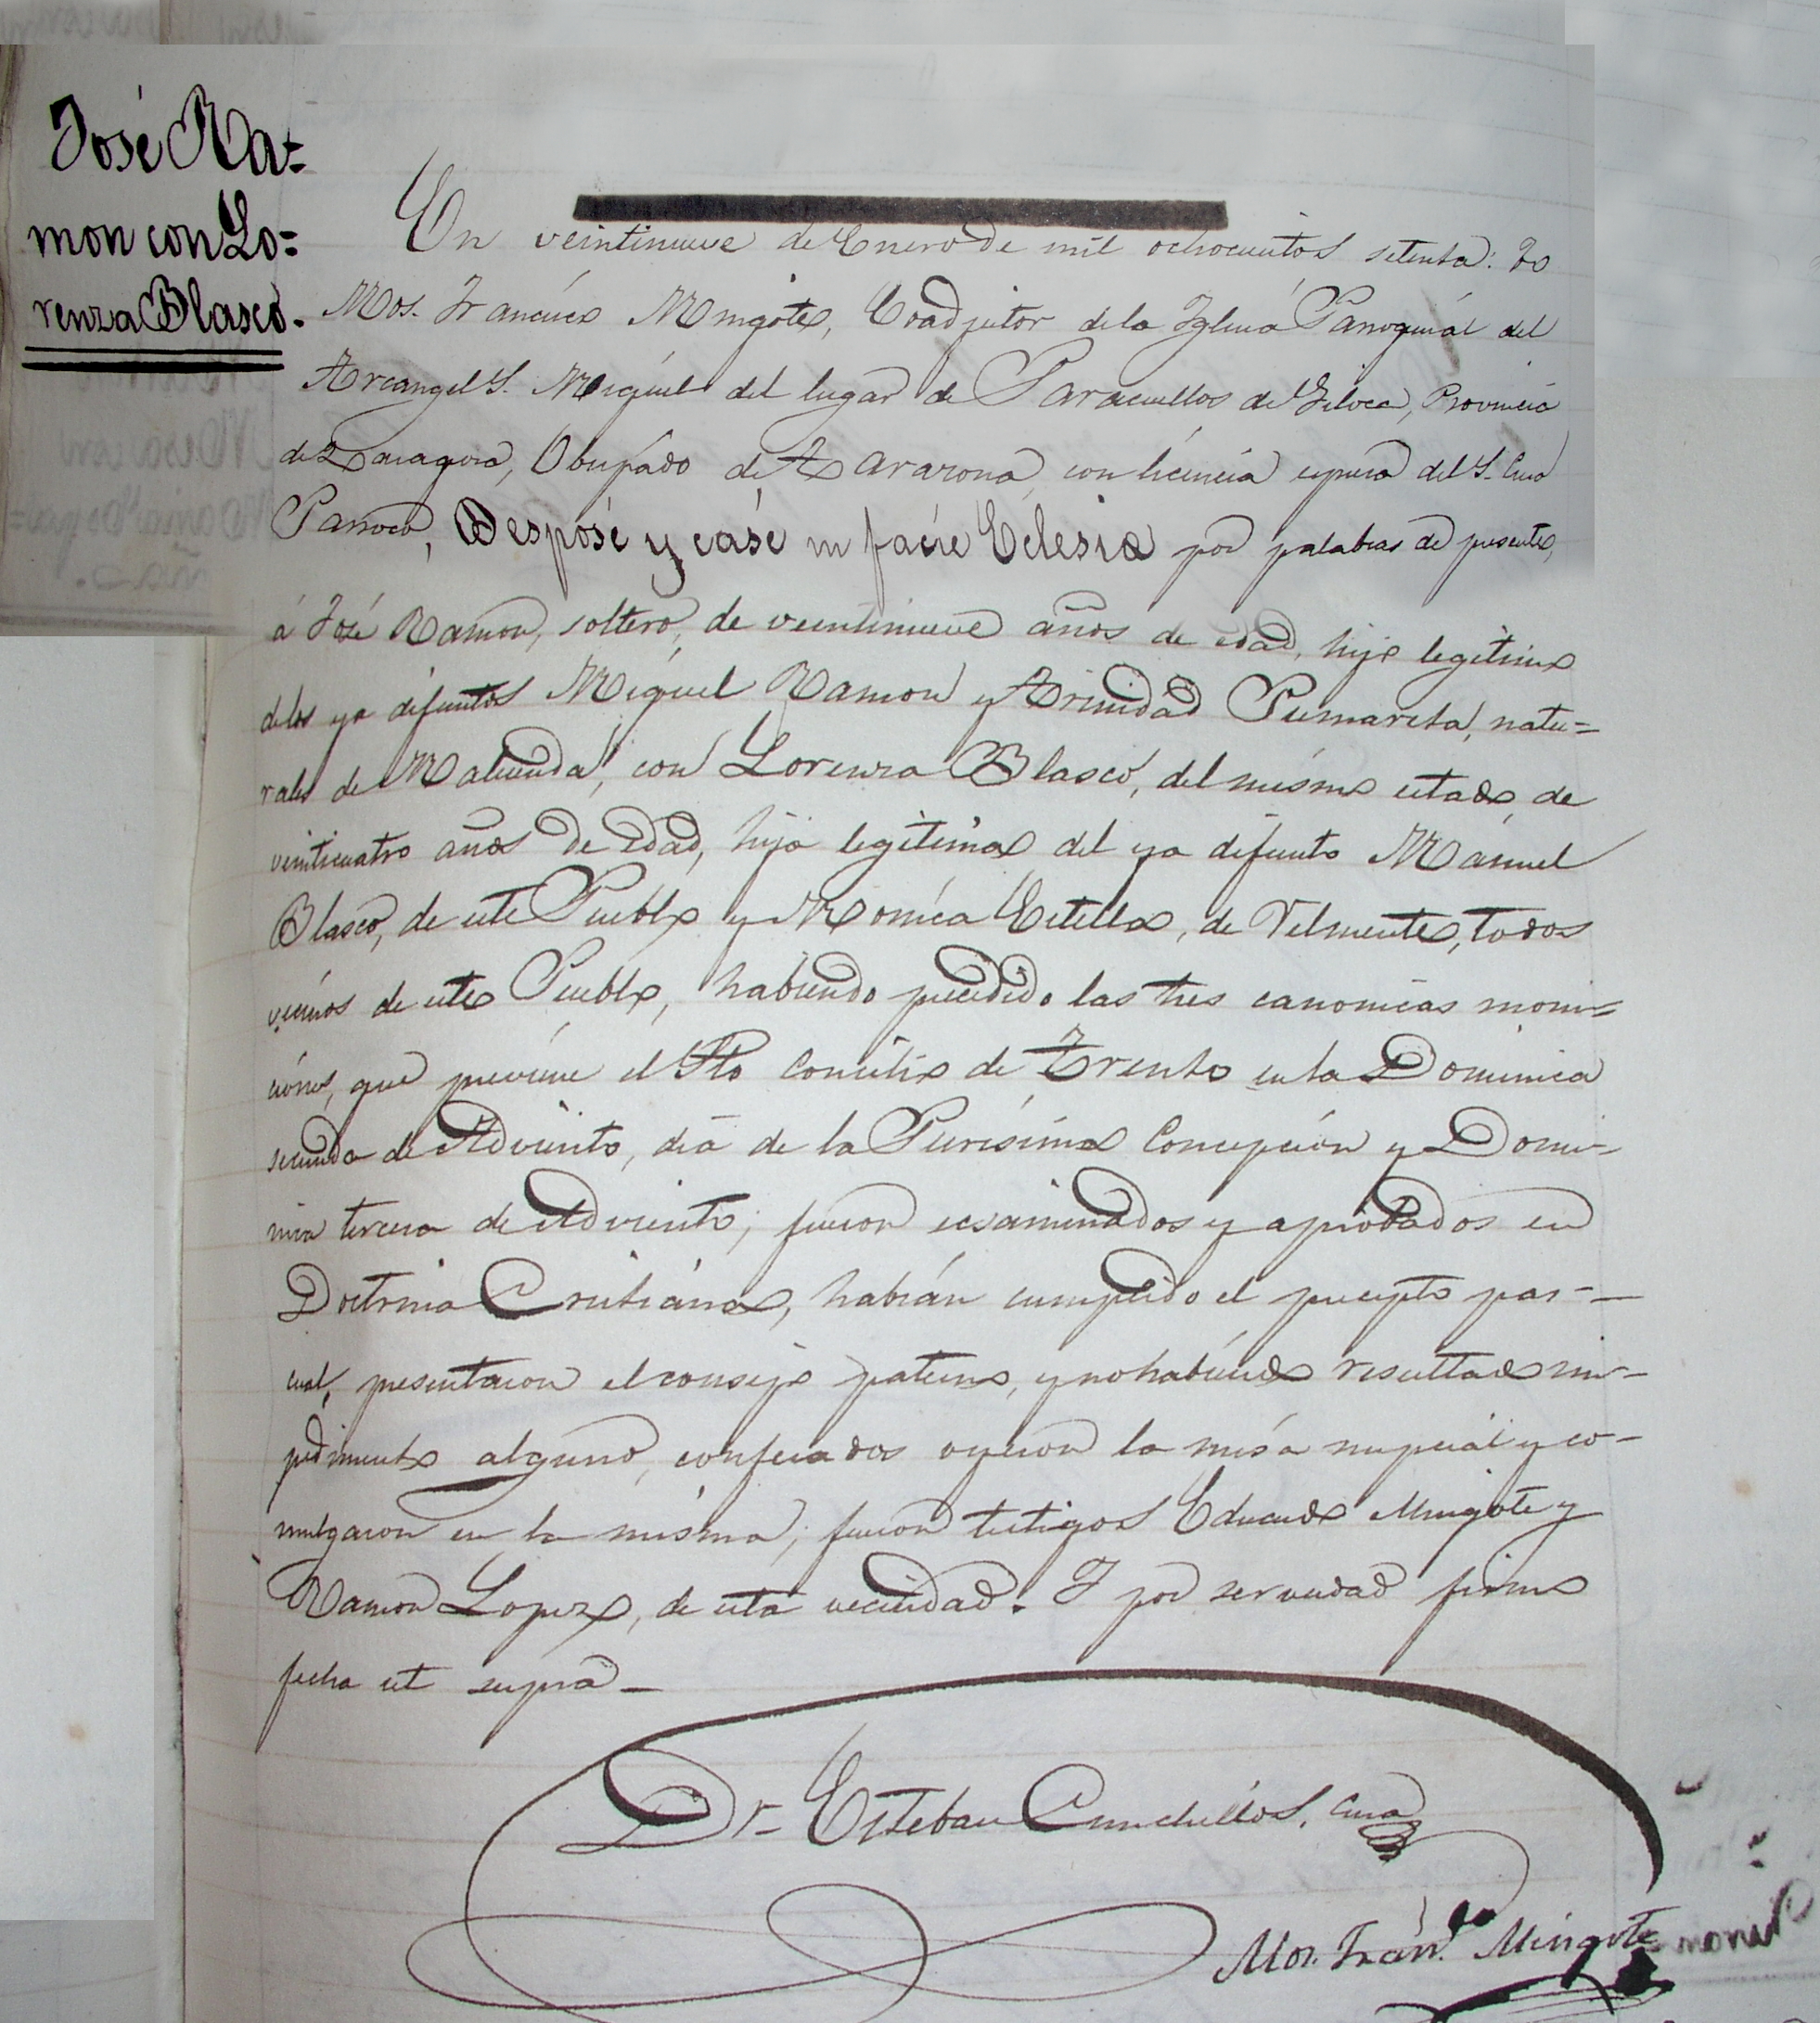 José Ra=
mon con Lo=
renza Blasco.
En veintinueve de Enero de mil ochocientos setenta: Yo
Mos. Francisco Mingote, Coadjutor de la Iglesia Parroquial del
Arcangel S. Miguel del lugar de Paracuellos de Giloca, Provincia
de Zaragoza, Obispado de Tarazona, con licencia espresa del S. Cura
Parroco, Desposé y casé in facie Eclesiæ por palabras de presente,
á José Ramon, soltero, de veintinueve años de edad, hijo legitimo
de los ya difuntos Miguel Ramon y Trinidad Pumareta, natu=
rales de Maluenda, con Lorenza Blasco, del mismo estado, de
veinticuatro años de edad, hija legitima del ya difunto Manuel
Blasco, de este Pueblo y Monica Estella, de Velmonte, todos
vecinos de este Pueblo, habiendo precedido las tres canonicas moni-
ciones, que previene el Sto Concilio de Trento en la Dominica
segunda de Adviento, dia de la Purisima Concepcion y Domi-
nica tercera de Adviento; fueron ecsaminados y aprobados en
Doctrina Cristiana, habian cumplido el precepto pas-
cual, presentaron el consejo paterno, y no habiendo resultado im-
pedimento alguno, confesados oyeron la misa nupcial y co-
mulgaron en la misma; fueron testigos Eduardo Mingote y
Ramon Lopez, de esta vecindad. Y por ser verdad firmo
fecha ut supra -
Dr. Esteban Cunchillos, Cura
Mos. Fran.co Mingote